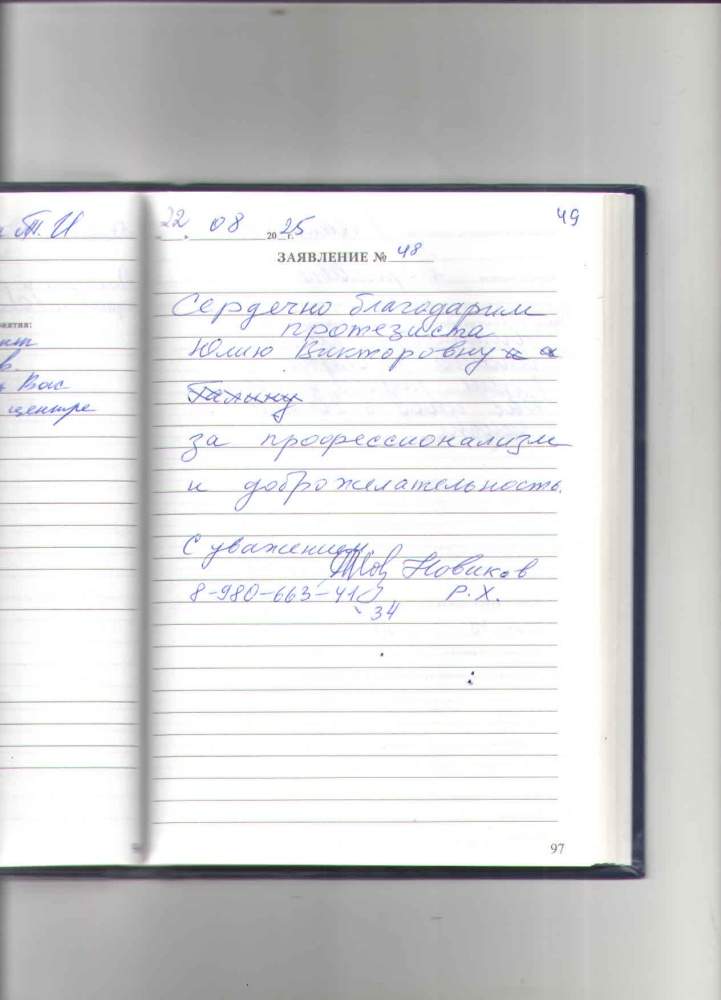 Т. И
22. 08 2025 г.
49
ЗАЯВЛЕНИЕ № 48
Сердечно благодарим
протезиста
Юлию Викторовну
Галину
за профессионализм
и доброжелательность.
С уважением,
Новиков
8-980-663-41
34
Р. Х.
Вас
центре
97